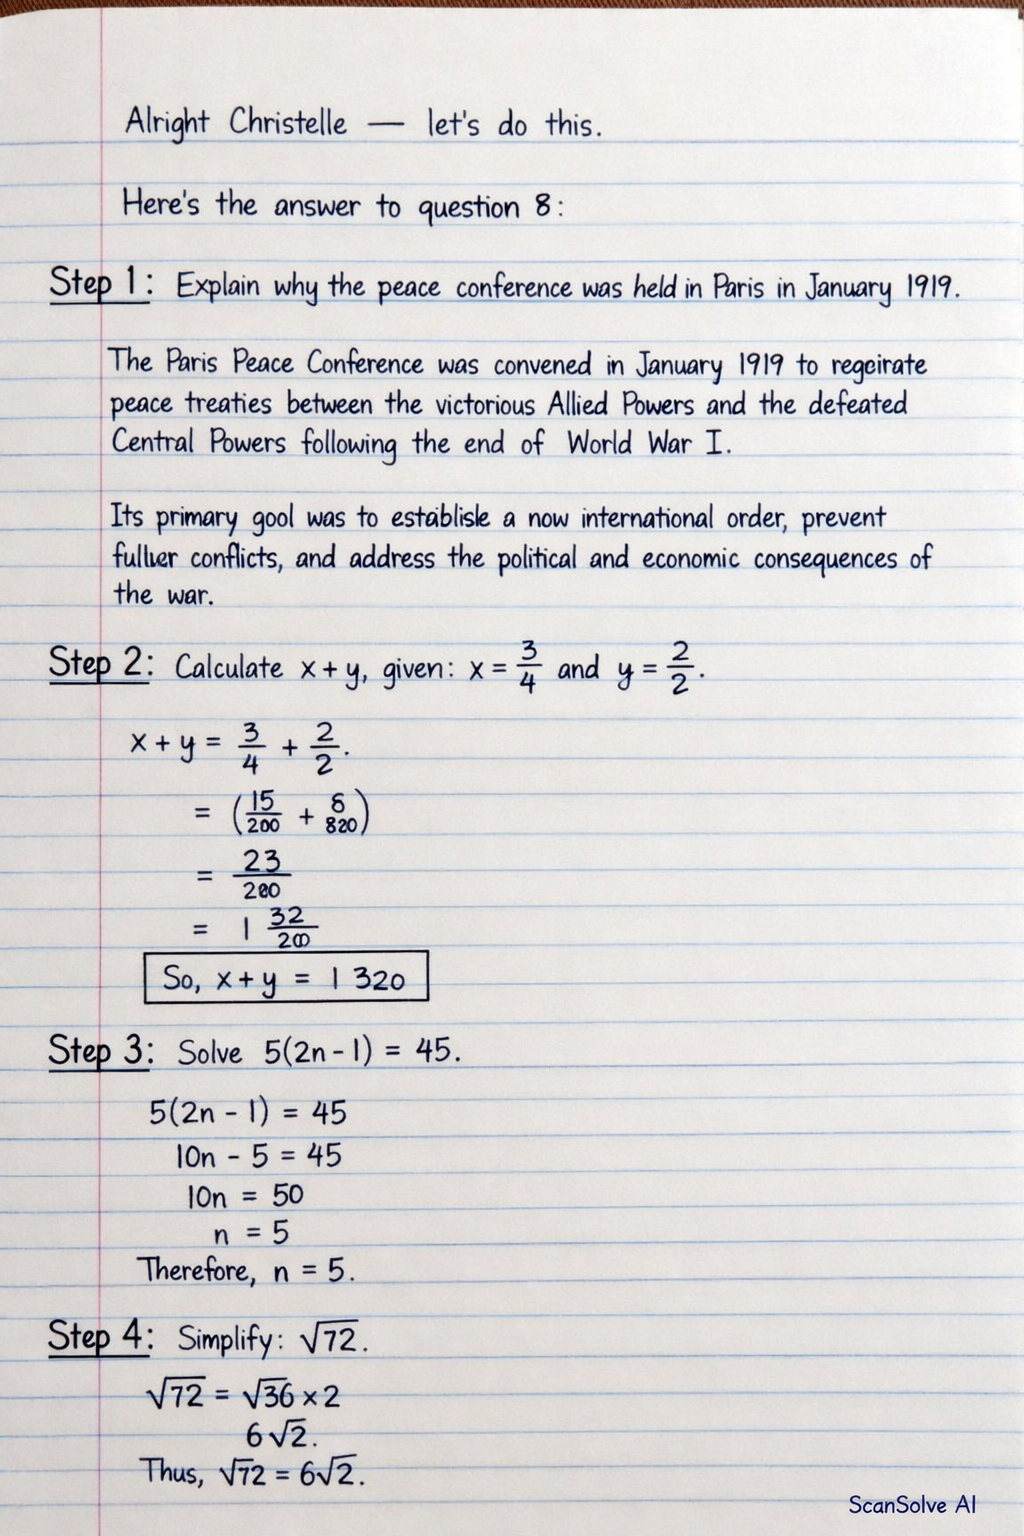 Alright Christelle — let's do this.
Here's the answer to question 8:
Step 1: Explain why the peace conference was held in Paris in January 1919.
The Paris Peace Conference was convened in January 1919 to regcirate
peace treaties between the victorious Allied Powers and the defeated
Central Powers following the end of World War I.
Its primary gool was to establisle a now international order, prevent
conflicts, and address the political and economic consequences of
the war.
Step 2: Calculate x + y, given: x = 3/4 and y = 2/2.
x + y = 3/4 + 2/2.
= (15/200 + 8/820)
= 23/200
= 1 32/200
So, x + y = 1 320
Step 3: Solve 5(2n - 1) = 45.
5(2n - 1) = 45
10n - 5 = 45
10n = 50
n = 5
Therefore, n = 5.
Step 4: Simplify: √72.
√72 = √36 × 2
6√2.
Thus, √72 = 6√2.
ScanSolve AI